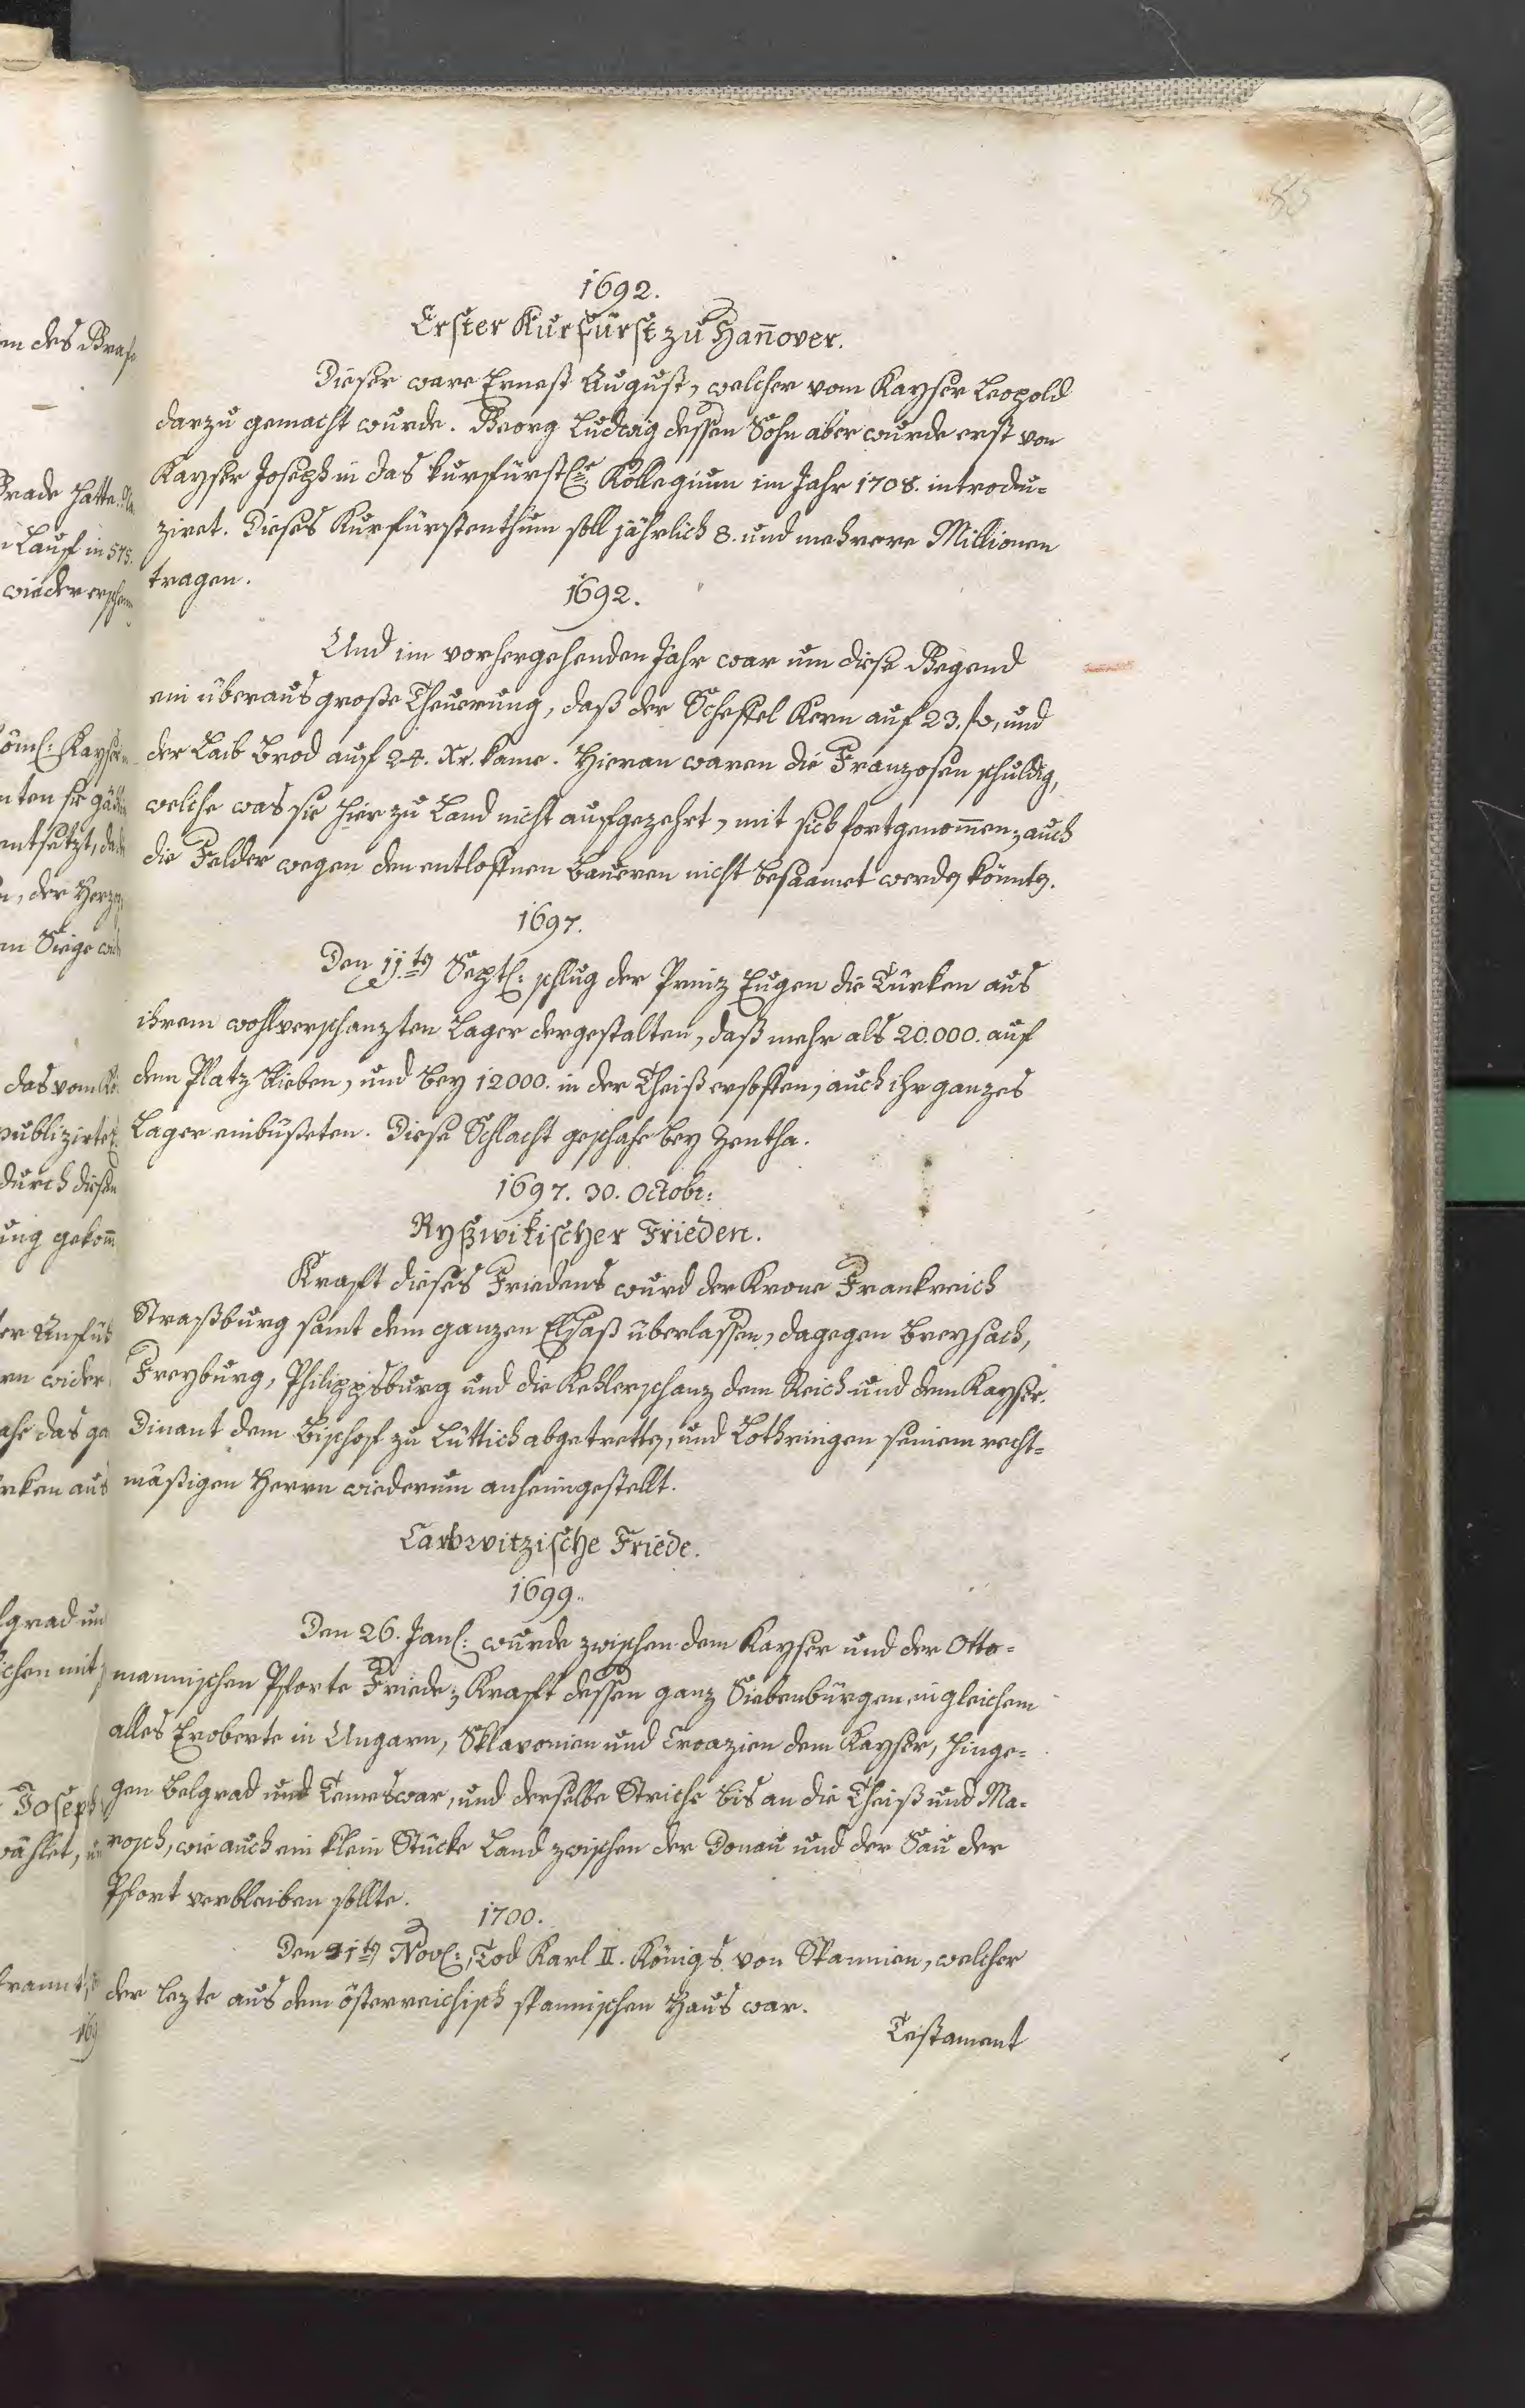 85
1692.
Erster Kurfürst zu Hañover.
Dieser ware Ernest August, welcher vom Kayser Leopold
darzu gemacht wurde. Georg Ludwig dessen Sohn aber wurde erst von
Kayser Joseph in das kurfürstl:e Kollegium im Jahr 1708. introdu=
ziret. Dieses Kurfürstenthum soll jährlich 8. und mehrere Millionen
tragen.
1692.
Und im vorhergehenden Jahr war um diese Gegend
ein überaus große Theuerung, daß der Scheffel Kern auf 23. fl, und
der Laib Brod auf 24. Xr. kame. Hieran waren die Franzosen schuldig,
welche was sie hier zu Land nicht aufgezehrt, mit sich fortgenom̄en, auch
die Felder wegen den entloffnen Baueren nicht besaamet werden könnten.
1697.
Den 11ten Septl: schlug der Prinz Eugen die Türken aus
ihrem wohlverschanzten Lager dergestalten, daß mehr als 20.000. auf
dem Platz blieben, und bey 12000. in der Theiß ersoffen, auch ihr ganzes
Lager einbüßeten. Diese Schlacht geschahe bey Zentha.
1697. 30. Octobr:
Ryßwikischer Frieden.
Krafft dieses Friedens wurd der Krone Frankreich
Straßburg samt dem ganzen Elsaß überlassen, dagegen Breysach,
Freyburg, Philippsburg und die Kehlerschanz dem Reich und dem Kayser.
Dinant dem Bischof zu Lüttich abgetretten, und Lothringen seinem recht=
mäßigen Herrn wiederum anheimgestellt.
Carlowitzische Friede.
1699.
Den 26. Janl: wurde zwischen dem Kayser und der Otto=
mannischen Pforte Friede; Krafft dessen ganz Siebenbürgen, ingleichem
alles Eroberte in Ungarn, Sklavonien und Croazien dem Kayser, hinge=
gen Belgrad und Temeswar, und derselbe Striche bis an die Theiß und Ma=
rosch, wie auch ein klein Stücke Land zwischen der Donau und der Sau der
Pfort verbleiben sollte.
1700.
Den 1ten Novl:, Tod Karl II. Königs von Spannien, welcher
der lezte aus dem österreichisch spannischen Haus war.
Testament